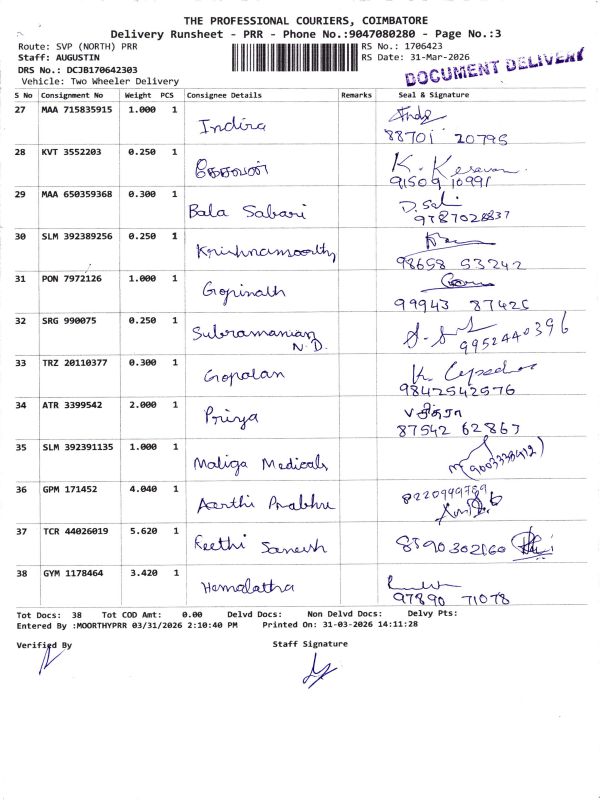 THE PROFESSIONAL COURIERS, COIMBATORE
Delivery Runsheet - PRR - Phone No.:9047080280 - Page No.:3
Route: SVP (NORTH) PRR RS No.: 1706423
Staff: AUGUSTIN RS Date: 31-Mar-2026
DRS No.: DCJB170642303
Vehicle: Two Wheeler Delivery
DOCUMENT DELIVERY
S No Consignment No Weight PCS Consignee Details Remarks Seal & Signature
27 MAA 715835915 1.000 1
Indira
88701 20795
28 KVT 3552203 0.250 1
கேசவன் K. Kesavan
91509 10991
29 MAA 650359368 0.300 1
Bala Sabari
9787028837
30 SLM 392389256 0.250 1
Krishnamoorthy
98658 53242
31 PON 7972126 1.000 1
Gopinath
99943 87425
32 SRG 990075 0.250 1
Subramanian
N.D. 9952440396
33 TRZ 20110377 0.300 1
Gopalan
9842542576
34 ATR 3399542 2.000 1
Priya
87542 62867
35 SLM 392391135 1.000 1
Maliga Medicals
36 GPM 171452 4.040 1
Aarthi Prabhu
8220949789
37 TCR 44026019 5.620 1
Keethi Sanesh 8590302160
38 GYM 1178464 3.420 1
Hemalatha
97890 71078
Tot Docs: 38 Tot COD Amt: 0.00 Delvd Docs: Non Delvd Docs: Delvy Pts:
Entered By :MOORTHYPRR 03/31/2026 2:10:40 PM Printed On: 31-03-2026 14:11:28
Verified By Staff Signature